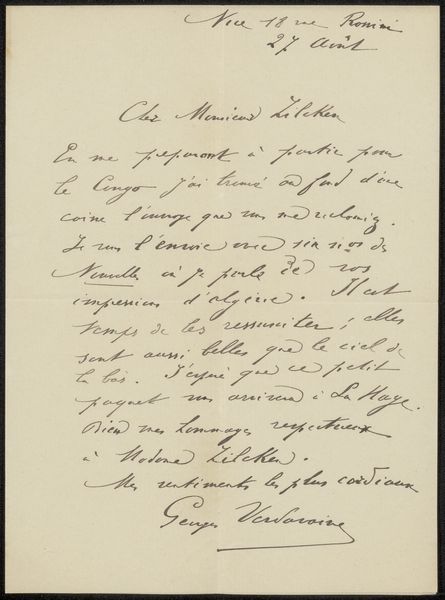 Nice 18 rue Rossini
27 Août
Cher Monsieur Zilcken
En me preparant à partir pour
le Congo j'ai trouvé au fond d'une
caisse l'ouvrage que vous me reclamiez.
Je vous l'envoie avec six nos de
Nouvelles où je parle de vos
impressions d'algérie. Il est
temps de les ressusciter; elles
sont aussi belles que le ciel de
la bas. J'espère que ce petit
paquet vous arrivera à La Haye.
Bien mes hommages respectueux
à Madame Zilcken.
Mes sentiments les plus cordiaux
Georges